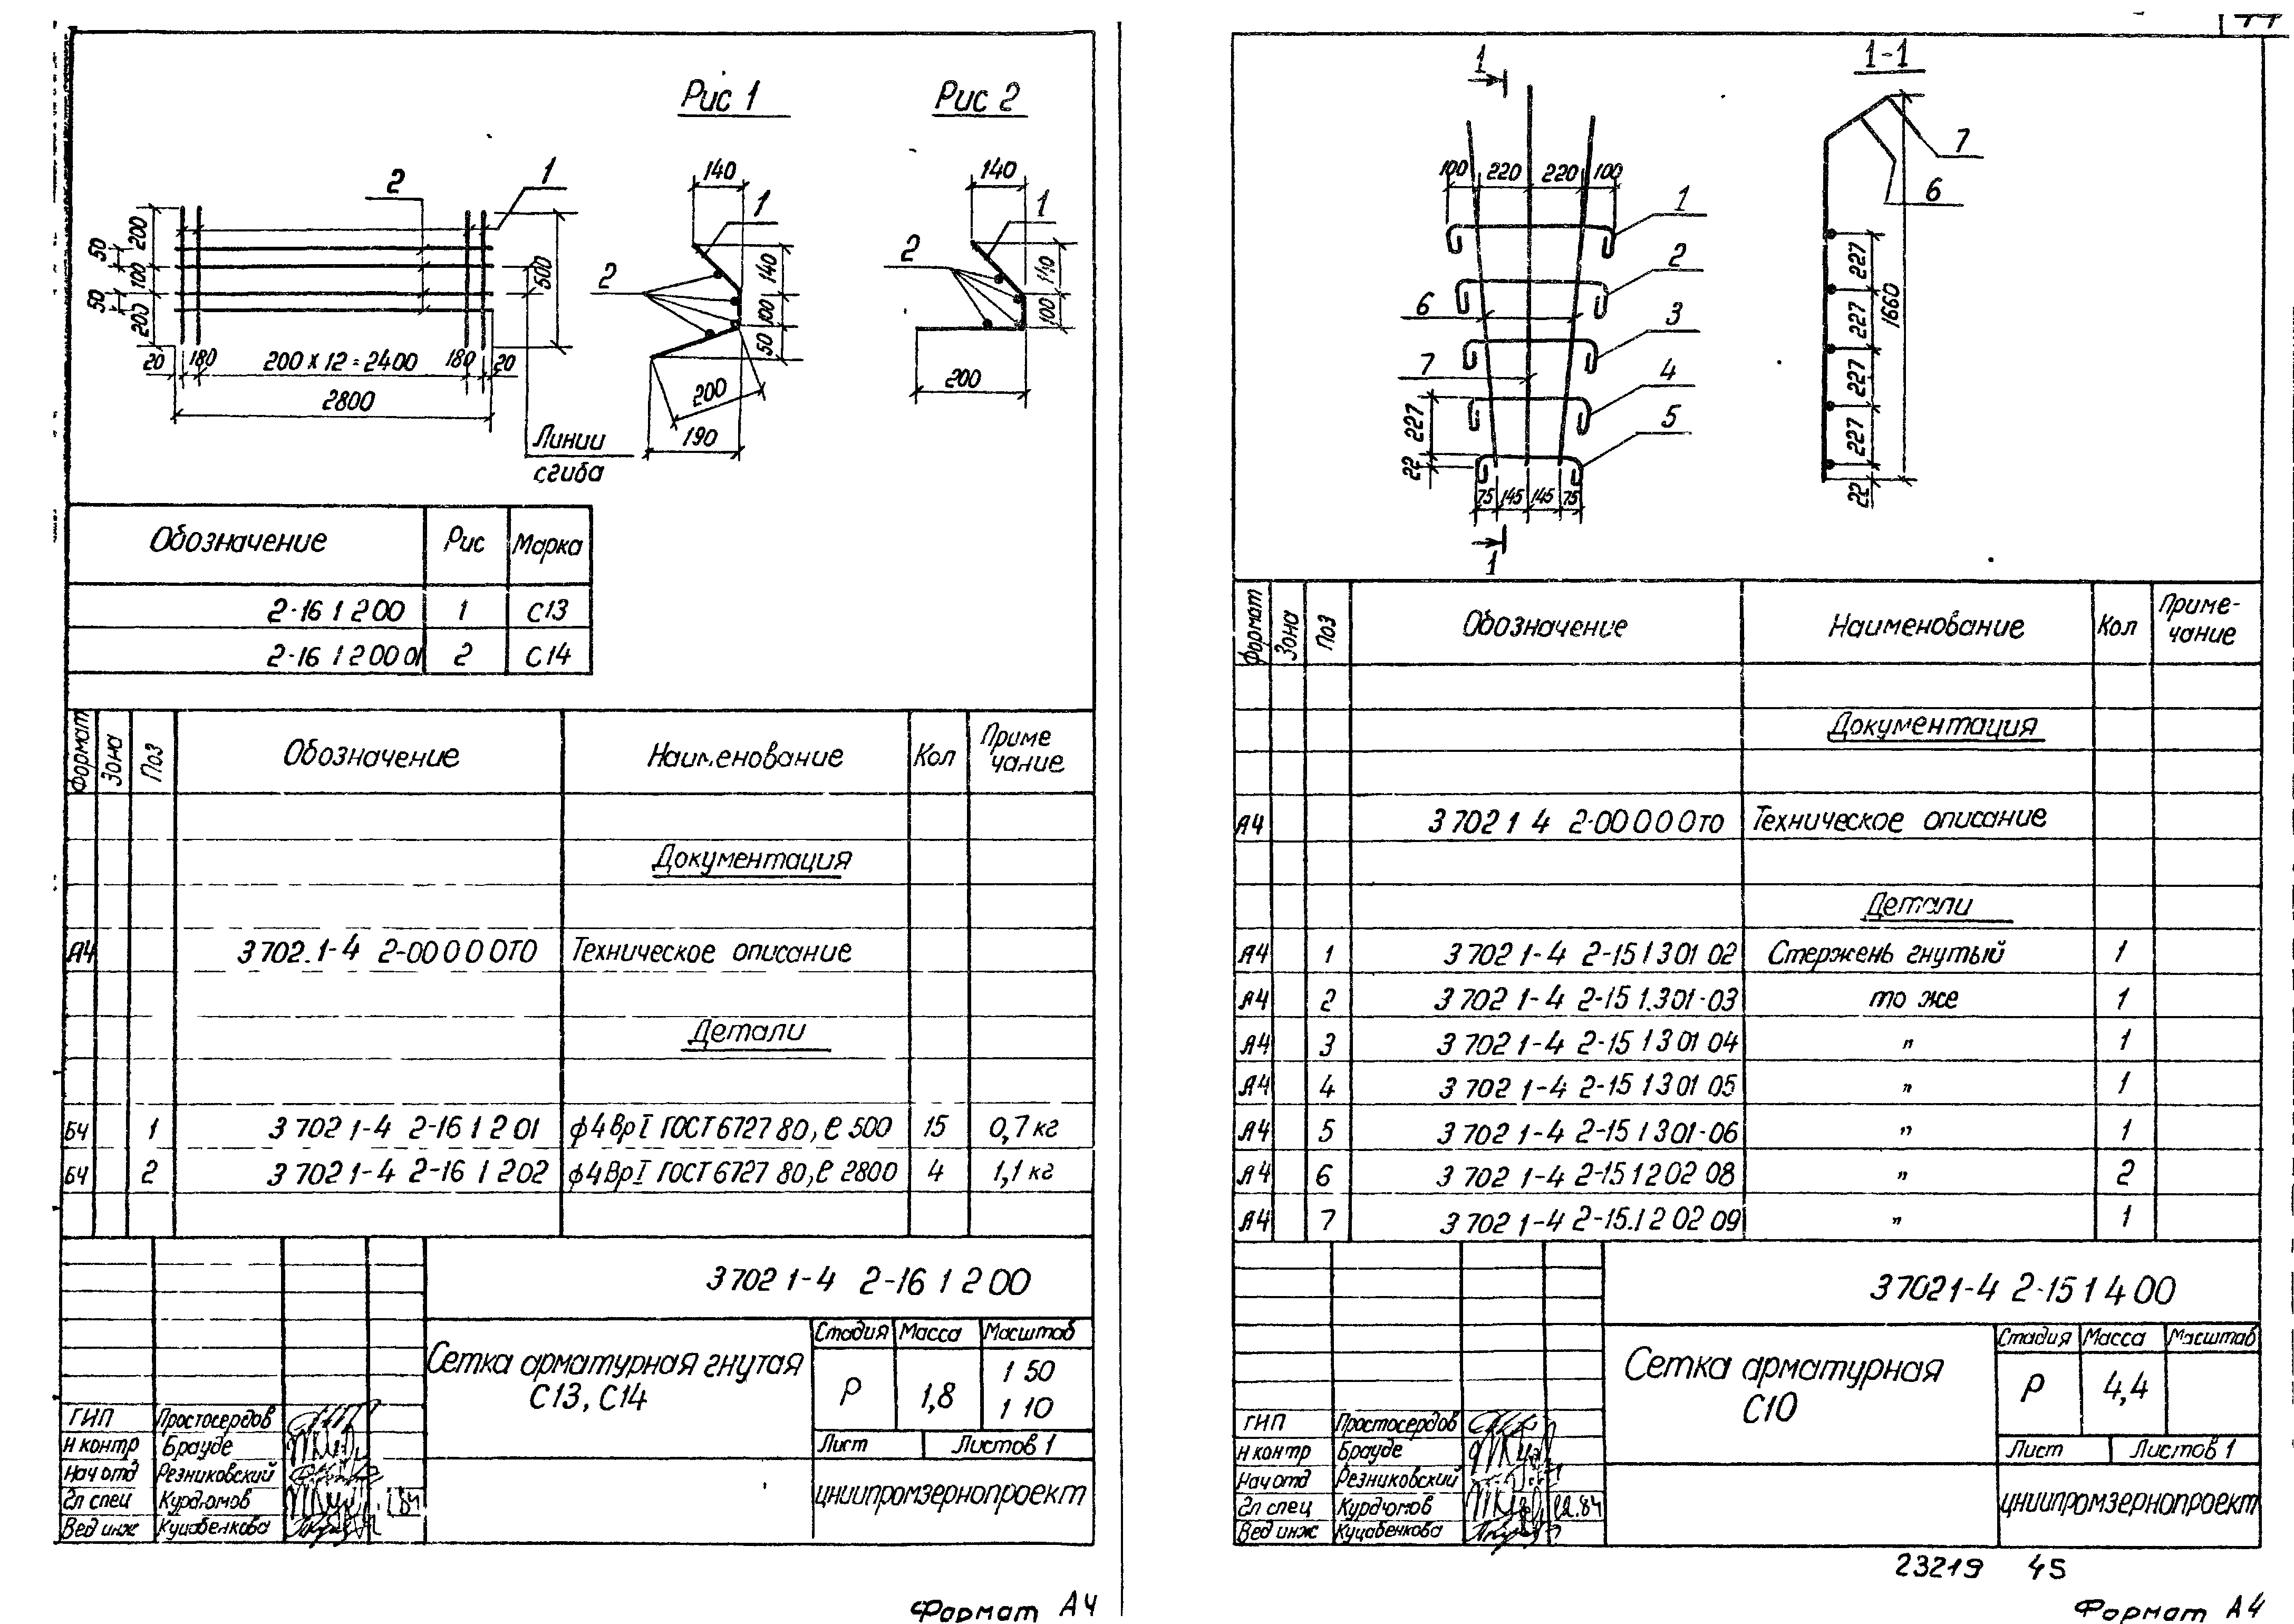 Рис 1
Рис 2
140
140
1
2
1
1
2
2
200
50
100
50
200
500
140
100
50
140
100
20
180
200 х 12 = 2400
180
20
2800
200
190
200
Линии
сгиба
Обозначение Рис Марка
2-16 1 2 00 1 С13
2-16 1 2 00 01 2 С14
Формат Зона Поз Обозначение Наименование Кол Приме
чание
Документация
А4 3 702.1-4 2-00 0 0 0ТО Техническое описание
Детали
БЧ 1 3 702 1-4 2-16 1 2 01 ф4 Вр I ГОСТ 6727 80, ℓ 500 15 0,7 кг
БЧ 2 3 702 1-4 2-16 1 2 02 ф4 Вр I ГОСТ 6727 80, ℓ 2800 4 1,1 кг
3 702 1-4 2-16 1 2 00
Сетка арматурная гнутая
С13, С14
Стадия Масса Масштаб
Р 1,8 1 50
1 10
Лист Листов 1
ЦНИИПРОМЗЕРНОПРОЕКТ
ГИП Простосердов
Н контр Брауде
Нач отд Резниковский
Гл спец Курдюмов 84
Вед инж Куцабенкова
Формат А4
1
1-1
100 220 220 100
1
2
3
4
5
6
7
7
6
227
22
75 145 145 75
1
227
227
227
227
22
1660
Формат Зона Поз Обозначение Наименование Кол Приме-
чание
Документация
А4 3 702 1 4 2-00 0 0 0ТО Техническое описание
Детали
А4 1 3 702 1-4 2-15 1 3 01 02 Стержень гнутый 1
А4 2 3 702 1-4 2-15 1.3 01-03 то же 1
А4 3 3 702 1-4 2-15 1 3 01 04 " 1
А4 4 3 702 1-4 2-15 1 3 01 05 " 1
А4 5 3 702 1-4 2-15 1 3 01-06 " 1
А4 6 3 702 1-4 2-15 1 2 02 08 " 2
А4 7 3 702 1-4 2-15.1 2 02 09 " 1
3 702 1-4 2-15 1 4 00
Сетка арматурная
С10
Стадия Масса Масштаб
Р 4,4
Лист Листов 1
ЦНИИПРОМЗЕРНОПРОЕКТ
ГИП Простосердов
Н контр Брауде
Нач отд Резниковский
Гл спец Курдюмов 12.84
Вед инж Куцабенкова
23219 45
Формат А4